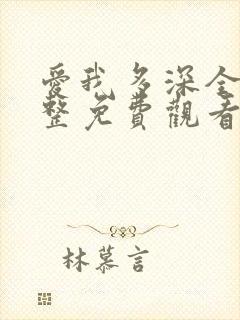 愛我多深全
整免費觀看
林慕言